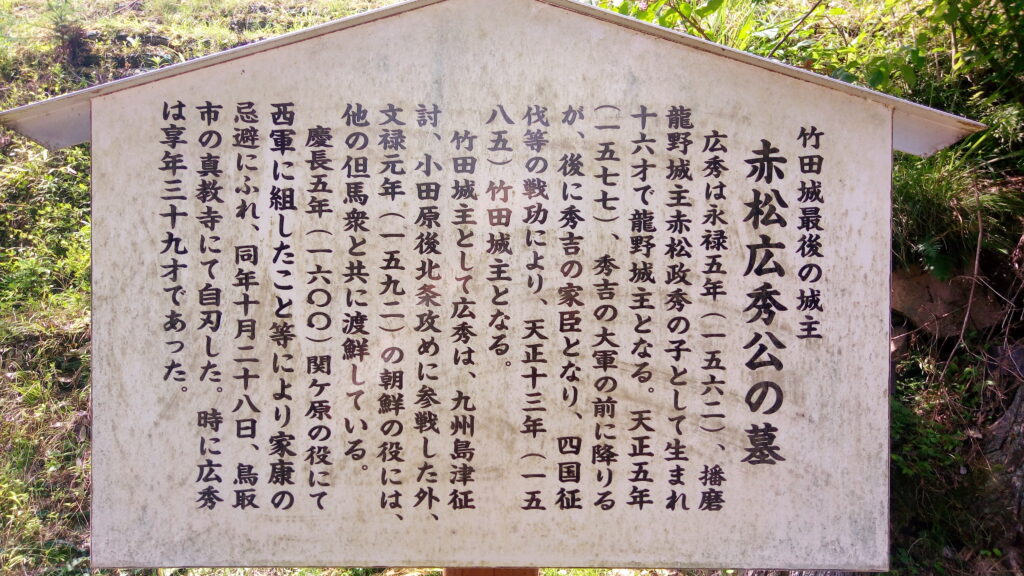 竹田城最後の城主
赤松広秀公の墓
広秀は永禄五年（一五六二）、播磨
龍野城主赤松政秀の子として生まれ
十六才で龍野城主となる。天正五年
（一五七七）、秀吉の大軍の前に降りる
が、後に秀吉の家臣となり、四国征
伐等の戦功により、天正十三年（一五
八五）竹田城主となる。
竹田城主として広秀は、九州島津征
討、小田原後北条攻めに参戦した外、
文禄元年（一五九二）の朝鮮の役には、
他の但馬衆と共に渡鮮している。
慶長五年（一六〇〇）関ケ原の役にて
西軍に組したこと等により家康の
忌避にふれ、同年十月二十八日、鳥取
市の真教寺にて自刃した。時に広秀
は享年三十九才であった。